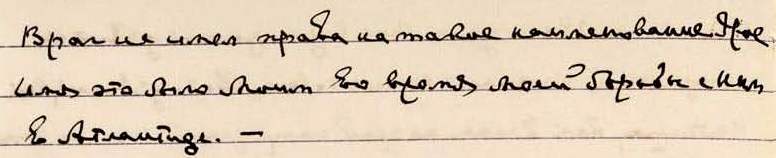 Враг не имел права на такое наименование. Трое
имя это было моим во время моей борьбы с ним
в Атлантиде. —